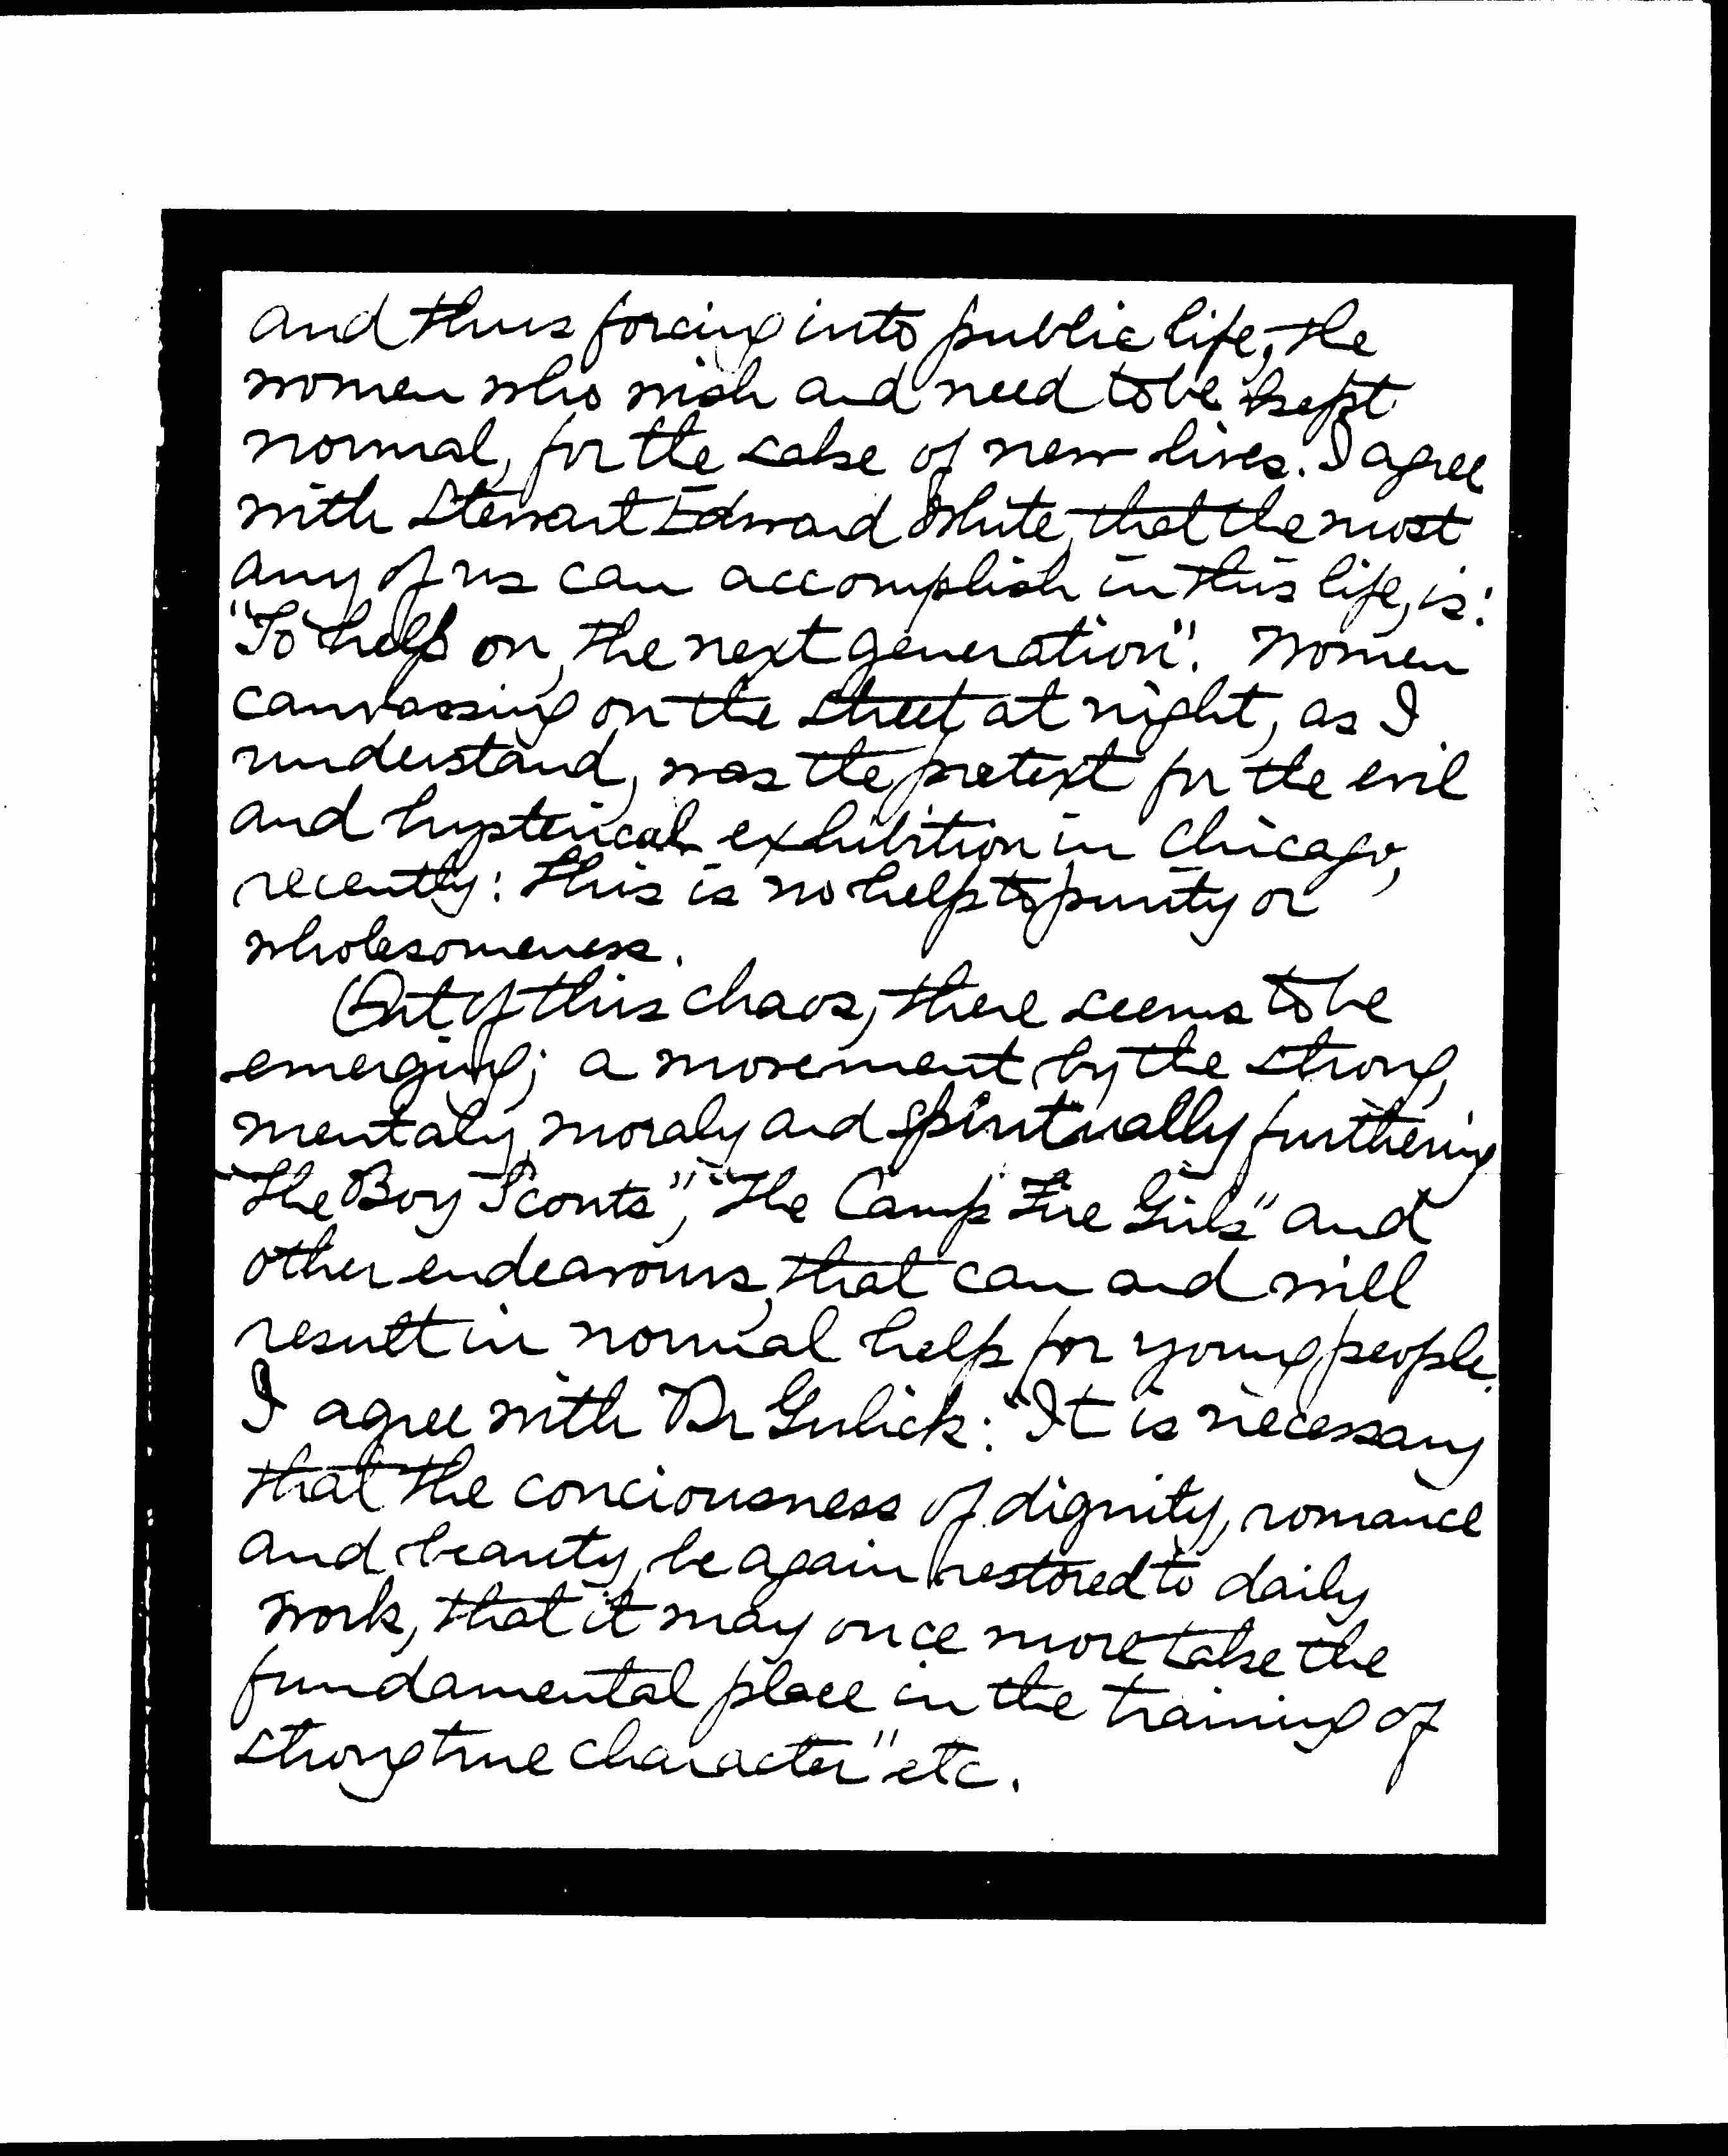 and thus forcing into public life, the
women who wish and need to be kept
normal, for the sake of new lives. I agree
with Stewart Edward White, that the most
any of us can accomplish in this life, is:
"To help on, the next generation". Women
canvassing on the street at night, as I
understand, was the pretext for the evil
and hysterical exhibition in Chicago,
recently: This is no help to purity or
wholesomeness.
Out of this chaos, there seems to be
emerging; a movement by the strong,
mentaly, moraly and spiritually furthering
"The Boy Scouts", "The Camp Fire Girls" and
other endeavours, that can and will
result in normal help for young people.
I agree with Dr Gulick: "It is necessary
that the conciousness of dignity, romance
and beauty, be again restored to daily
work, that it may once more take the
fundamental place in the training of
strong true character" etc.